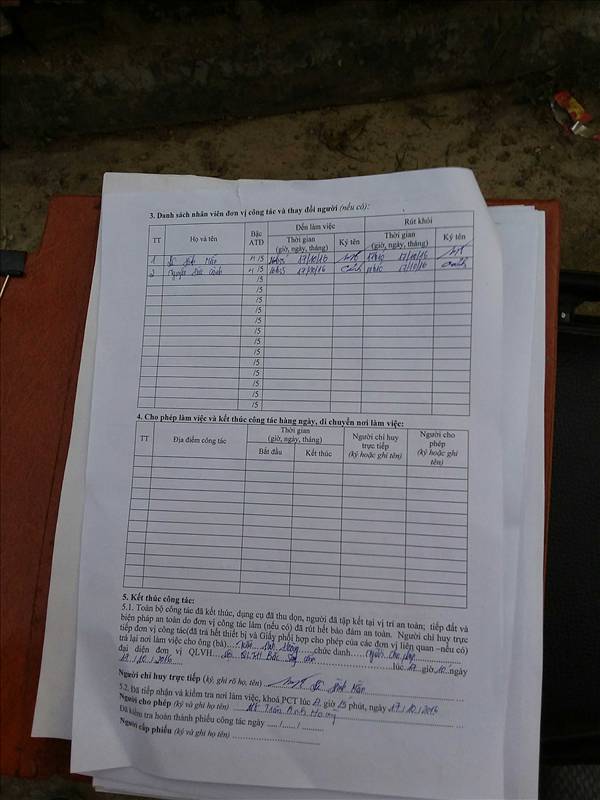 3. Danh sách nhân viên đơn vị công tác và thay đổi người (nếu có):
TT Họ và tên Bậc ATĐ Đến làm việc Rút khỏi
Thời gian (giờ, ngày, tháng) Ký tên Thời gian (giờ, ngày, tháng) Ký tên
1 Mẫn 4 /5 17/10/16 17h10 17/10/16
2 Nguyễn Đức Cảnh 4 /5 17/10/16 17h10 17/10/16
/5
/5
/5
/5
/5
/5
/5
/5
/5
/5
/5
/5
/5
4. Cho phép làm việc và kết thúc công tác hàng ngày, di chuyển nơi làm việc:
TT Địa điểm công tác Thời gian (giờ, ngày, tháng) Người chỉ huy trực tiếp (ký hoặc ghi tên) Người cho phép (ký hoặc ghi tên)
Bắt đầu Kết thúc
5. Kết thúc công tác:
5.1. Toàn bộ công tác đã kết thúc, dụng cụ đã thu dọn, người đã tập kết tại vị trí an toàn; tiếp đất và
biện pháp an toàn do đơn vị công tác làm (nếu có) đã rút hết bảo đảm an toàn. Người chỉ huy trực
tiếp đơn vị công tác(đã trả hết thiết bị và Giấy phối hợp cho phép của các đơn vị liên quan –nếu có)
trả lại nơi làm việc cho ông (bà) Trần Anh Hoàng chức danh Người cho phép
đại diện đơn vị QLVH lúc 17 giờ 10 ngày
17 / 10 / 2016
Người chỉ huy trực tiếp (ký, ghi rõ họ, tên) Mẫn
5.2. Đã tiếp nhận và kiểm tra nơi làm việc, khoá PCT lúc 17 giờ 15 phút, ngày 17 / 10 / 2016
Người cho phép (ký và ghi họ tên) Trần Anh Hoàng
Đã kiểm tra hoàn thành phiếu công tác ngày ...../....../ .........
Người cấp phiếu (ký và ghi họ tên)